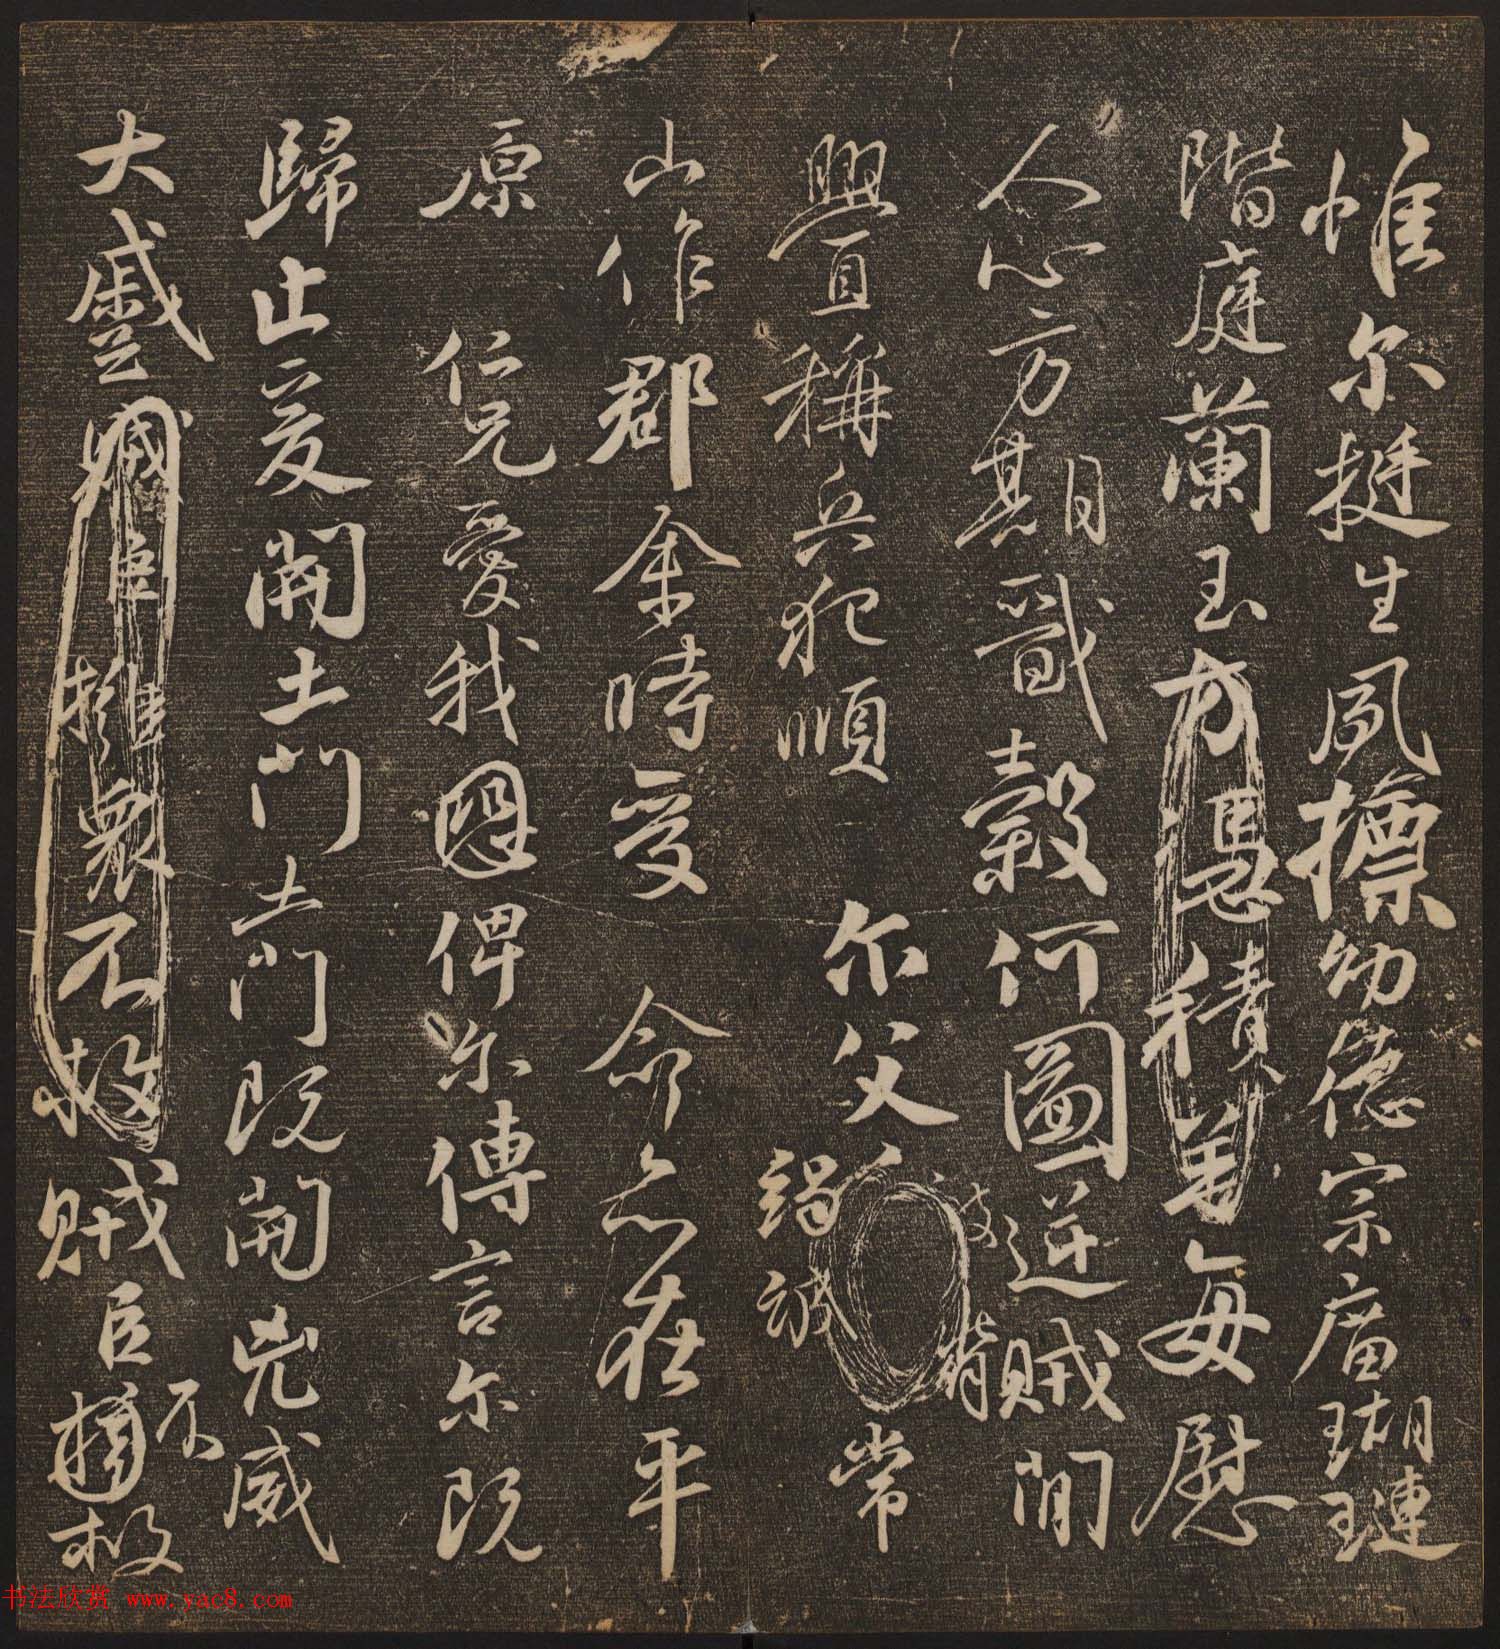 惟尔挺生夙摽幼德宗廟瑚璉
階庭蘭玉方憑積善每慰
人心方期戩穀何圖逆賊間
釁稱兵犯順尔父竭誠常
山作郡余時受命亦在平
原仁兄愛我恩俾尔傳言尔既
歸止爰開土門土門既開凶威
大蹙賊臣擁衆不救賊臣不擁救
书法欣赏 www.yac8.com